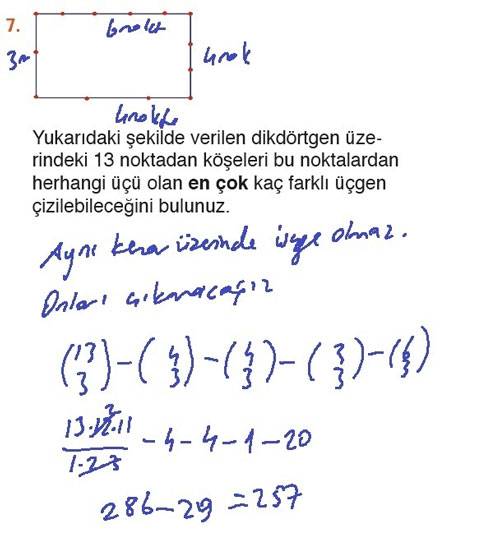 7.
6 nokta
3n
4 nok
4 nokta
Yukarıdaki şekilde verilen dikdörtgen üze-
rindeki 13 noktadan köşeleri bu noktalardan
herhangi üçü olan en çok kaç farklı üçgen
çizilebileceğini bulunuz.
Aynı kenar üzerinde üçgen olmaz.
Onları çıkaracağız
(13 3) - (4 3) - (4 3) - (3 3) - (6 3)
13.12.11 / 1.2.3 - 4 - 4 - 1 - 20
286 - 29 = 257